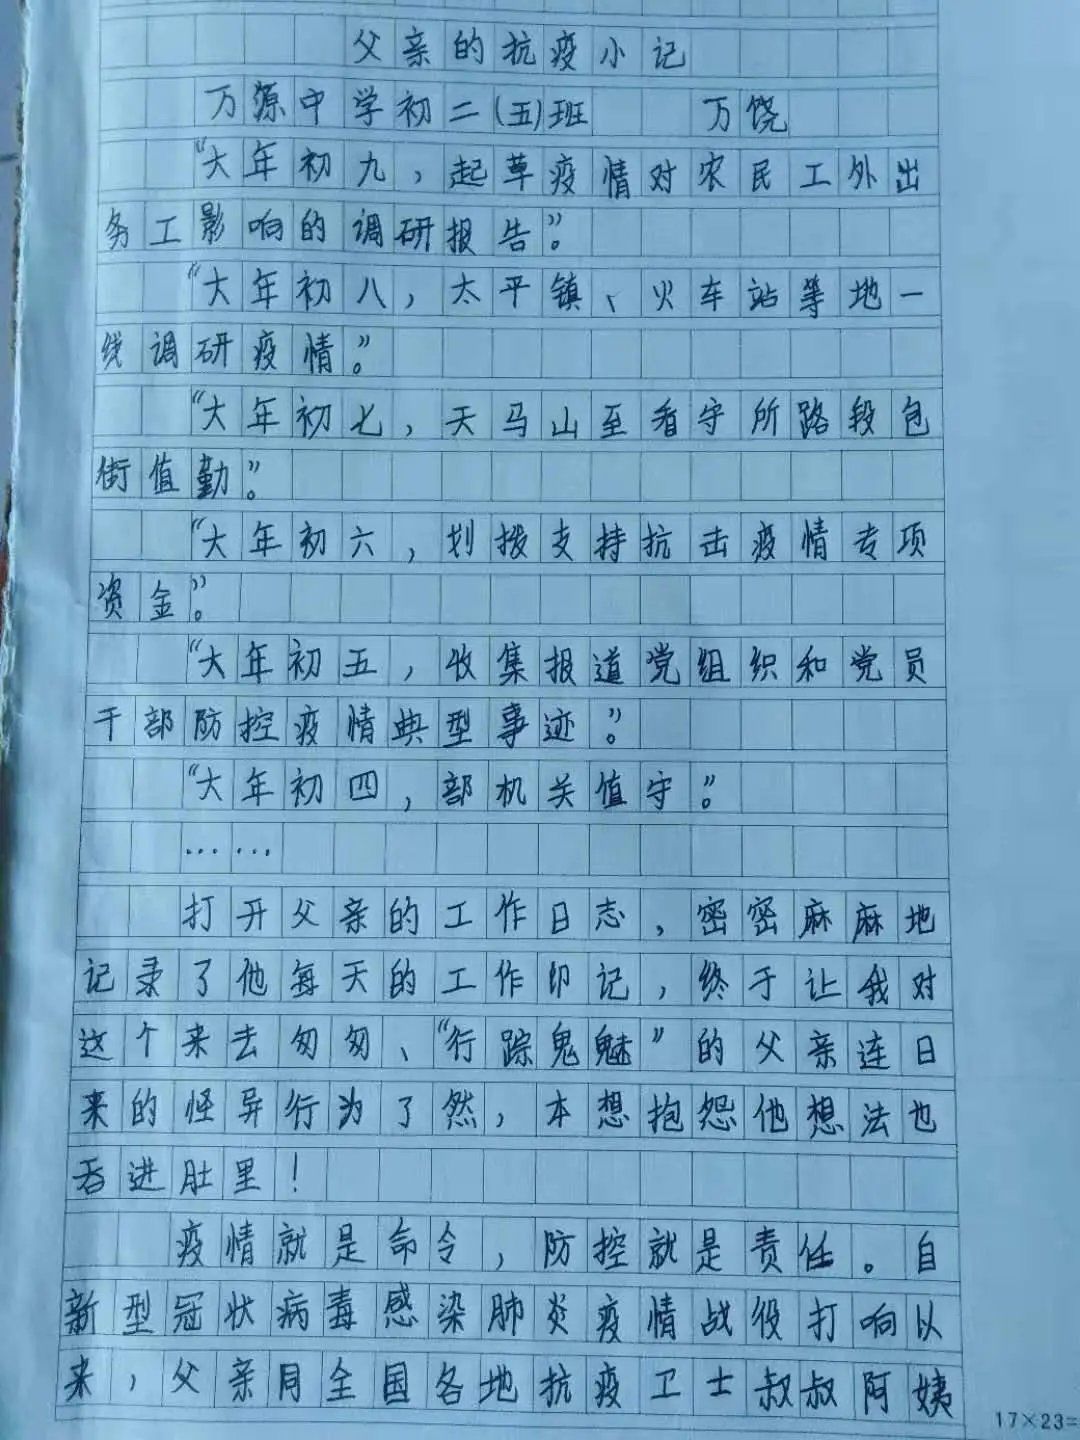 父亲的抗疫小记
万源中学初二(五)班 万饶
“大年初九，起草疫情对农民工外出
务工影响的调研报告”。
“大年初八，太平镇、火车站等地一
线调研疫情”。
“大年初七，天马山至看守所路段包
街值勤”。
“大年初六，划拨支持抗击疫情专项
资金”。
“大年初五，收集报道党组织和党员
干部防控疫情典型事迹”。
“大年初四，部机关值守”。
……
打开父亲的工作日志，密密麻麻地
记录了他每天的工作印记，终于让我对
这个来去匆匆、“行踪鬼魅”的父亲连日
来的怪异行为了然，本想抱怨他想法也
吞进肚里！
疫情就是命令，防控就是责任。自
新型冠状病毒感染肺炎疫情战役打响以
来，父亲同全国各地抗疫卫士叔叔阿姨
17×23=